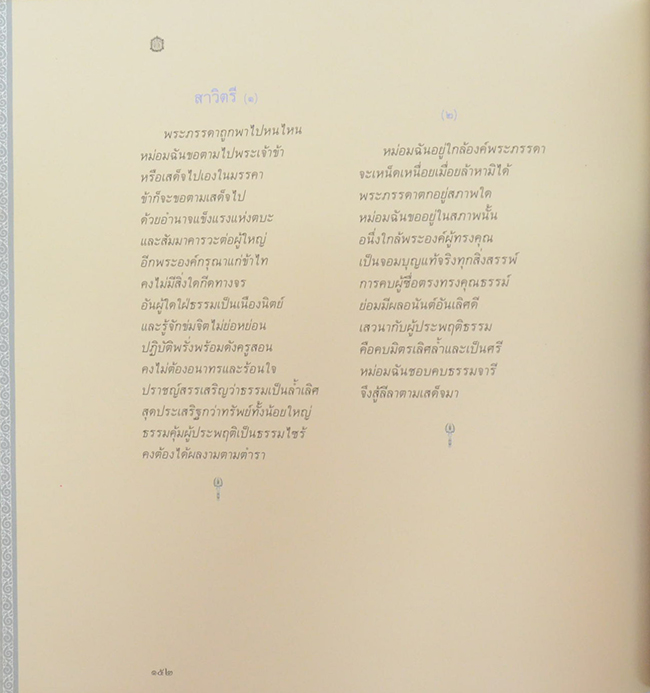 สาวิตรี (๑)
พระภรรดาถูกพาไปหนไหน
หม่อมฉันขอตามไปพระเจ้าข้า
หรือเสด็จไปเองในมรรคา
ข้าก็จะขอตามเสด็จไป
ด้วยอำนาจแข็งแรงแห่งตบะ
และสัมมาคารวะต่อผู้ใหญ่
อีกพระองค์กรุณาแก่ข้าไท
คงไม่มีสิ่งใดกีดทางจร
อันผู้ใดใฝ่ธรรมเป็นเนืองนิตย์
และรู้จักข่มจิตไม่ย่อหย่อน
ปฏิบัติพรั่งพร้อมดังครูสอน
คงไม่ต้องอนาทรและร้อนใจ
ปราชญ์สรรเสริญว่าธรรมเป็นล้ำเลิศ
สุดประเสริฐกว่าทรัพย์ทั้งน้อยใหญ่
ธรรมคุ้มผู้ประพฤติเป็นธรรมไซร้
คงต้องได้ผลงามตามตำรา
(๒)
หม่อมฉันอยู่ใกล้องค์พระภรรดา
จะเหน็ดเหนื่อยเมื่อยล้าหามิได้
พระภรรดาตกอยู่สภาพใด
หม่อมฉันขออยู่ในสภาพนั้น
อนึ่งใกล้พระองค์ผู้ทรงคุณ
เป็นจอมบุญแท้จริงทุกสิ่งสรรพ์
การคบผู้ซื่อตรงทรงคุณธรรม์
ย่อมมีผลอนันต์อันเลิศดี
เสวนากับผู้ประพฤติธรรม
คือคบมิตรเลิศล้ำและเป็นศรี
หม่อมฉันชอบคบธรรมจารี
จึงสู้ลีลาตามเสด็จมา
๑๕๒